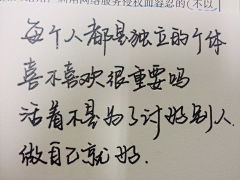 则用网络服务侵权而容忍的(不以
每个人都是独立的个体
喜不喜欢很重要吗
活着不是为了讨好别人.
做自己就好.